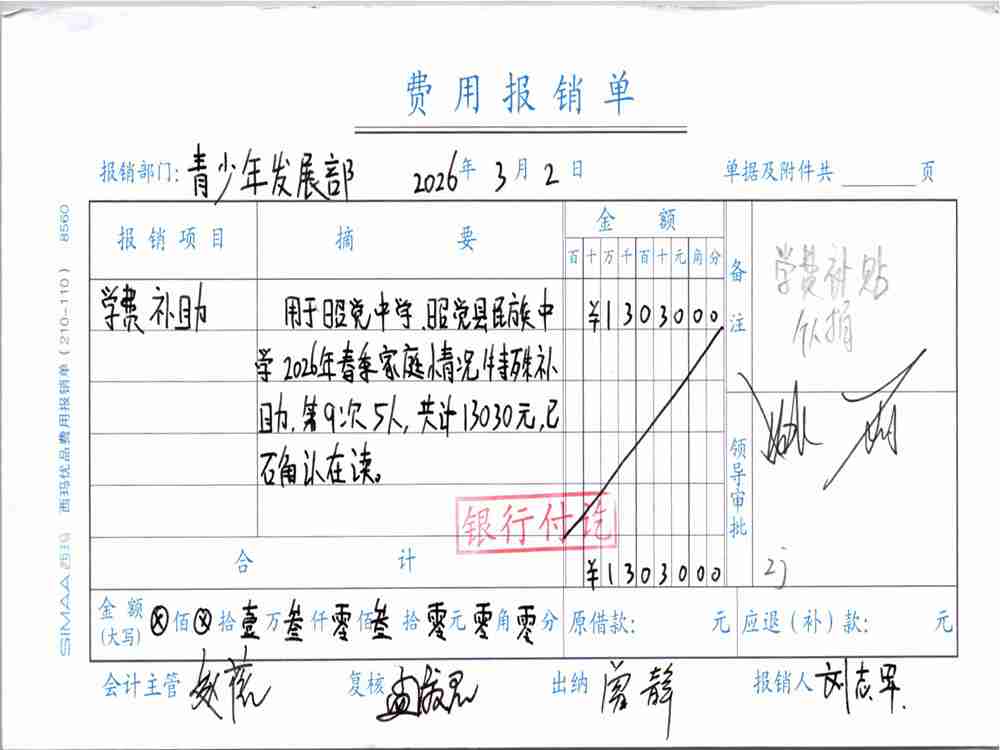 费用报销单
报销部门：青少年发展部 2026年3月2日 单据及附件共 页
报销项目 摘要 金额 备注
百十万千百十元角分
学费补助 用于昭觉中学、昭觉县民族中 ¥1303000
学2026年春季家庭情况特殊补
助，第9次5人，共计13030元，已
确认在读。
学费补贴
领导审批
银行付讫
合计 ¥1303000
金额(大写) ⊗佰⊗拾壹万叁仟零佰叁拾零元零角零分 原借款： 元 应退（补）款： 元
会计主管 复核 出纳 曾静 报销人 刘志军
SIMAA 西玛 西玛优品费用报销单（210-110） 8560